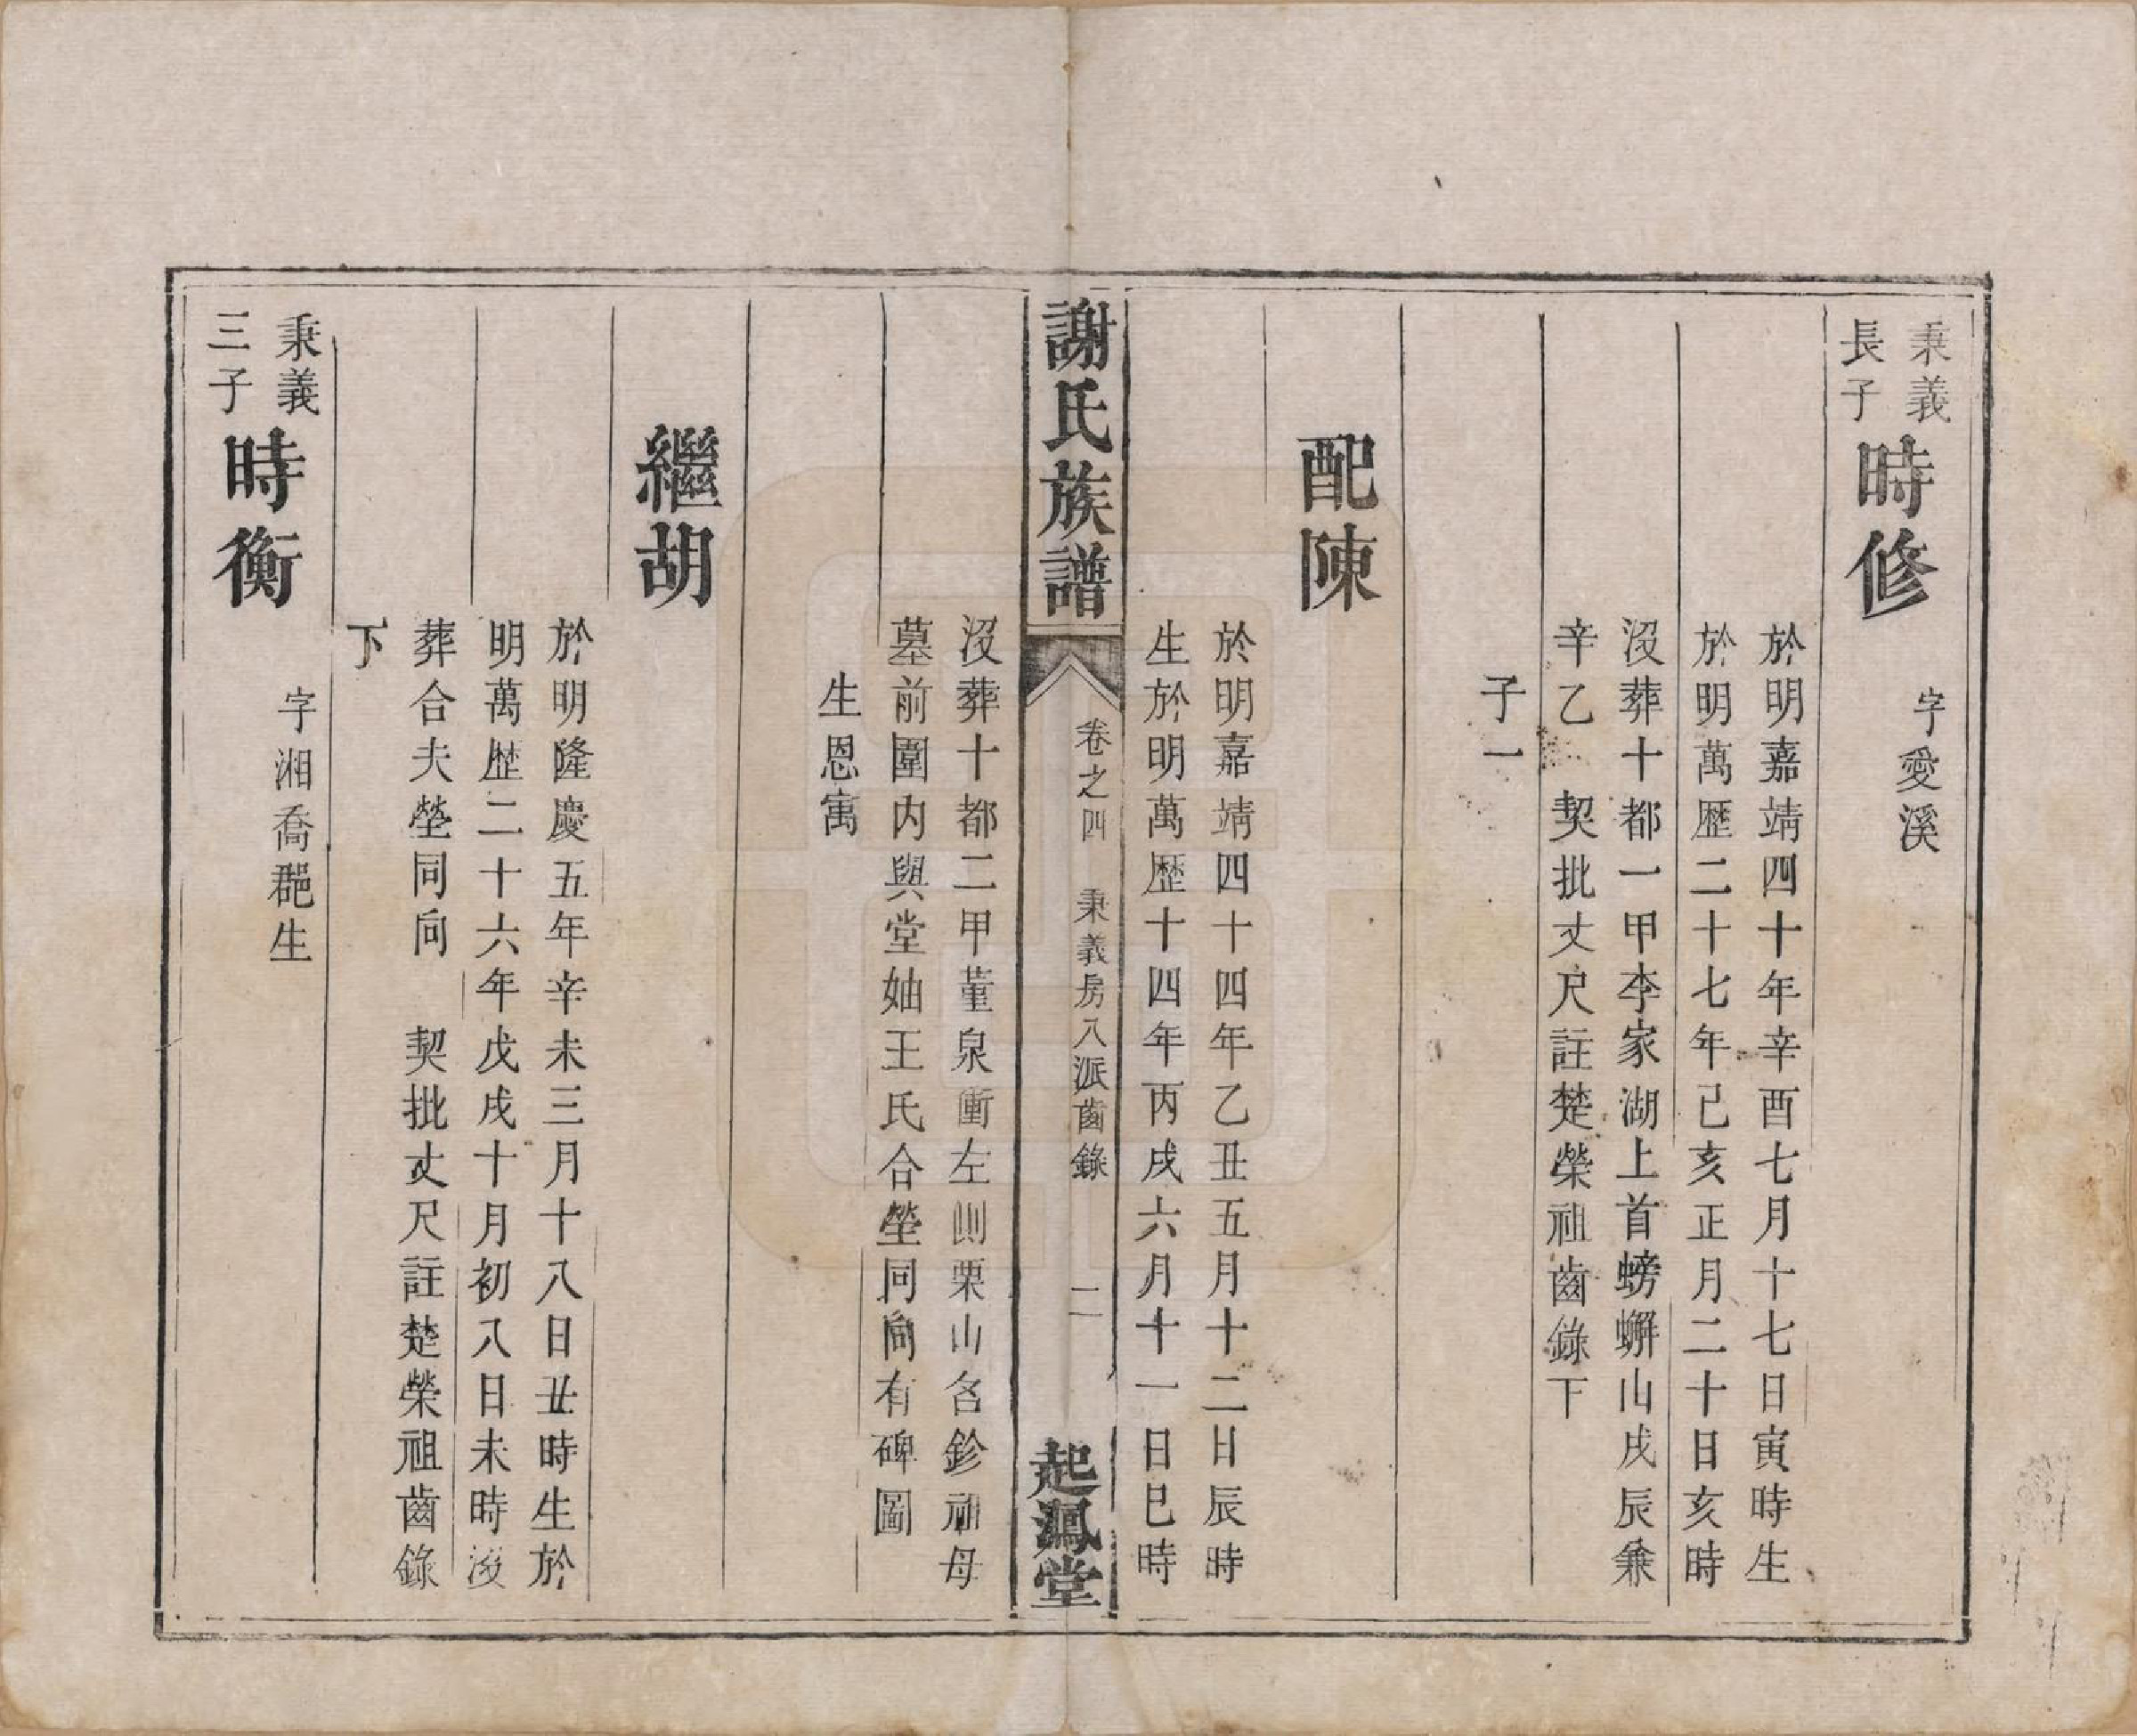 秉義
長子
時修
字愛溪
於明嘉靖四十年辛酉七月十七日寅時生
於明萬歷二十七年己亥正月二十日亥時
沒葬十都一甲李家湖上首螃蠏山戌辰兼
辛乙　契批丈尺註楚榮祖齒錄下
子一
配陳
於明嘉靖四十四年乙丑五月十二日辰時
生於明萬歷十四年丙戌六月十一日巳時
謝氏族譜
卷之四　秉義房八派齒錄　二
起鳳堂
沒葬十都二甲董泉衝左側栗山名鉁祖母
墓前圍內與堂妯王氏合塋同向有碑圖
生恩寓
繼胡
於明隆慶五年辛未三月十八日丑時生於
明萬歷二十六年戊戌十月初八日未時沒
葬合夫塋同向　契批丈尺註楚榮祖齒錄
下
秉義
三子
時衡
字湘喬郡生